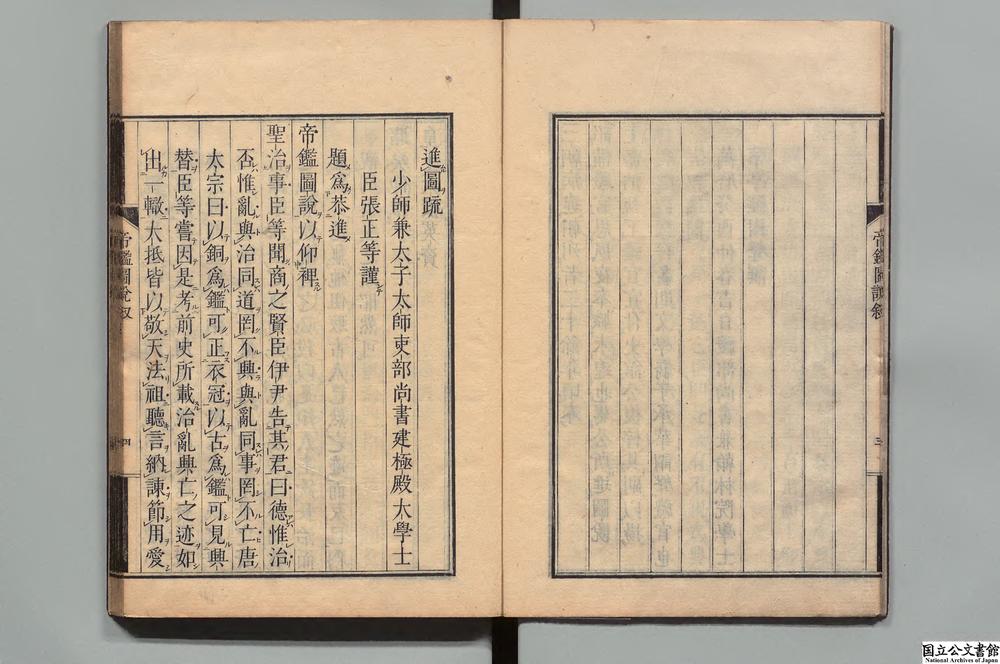 帝鑑圖説叙
三
進圖疏
少師兼太子太師吏部尚書建極殿大學士
臣張正等謹
題爲恭進
帝鑑圖說以仰裨
聖治事臣等聞商之賢臣伊尹告其君曰德惟治
否惟亂與治同道罔不興與亂同事罔不亡唐
太宗曰以銅爲鑑可正衣冠以古爲鑑可見興
替臣等嘗因是考前史所載治亂興亡之迹如
出一轍大抵皆以敬天法祖聽言納諫節用愛
帝鑑圖說叙
四
国立公文書館
National Archives of Japan